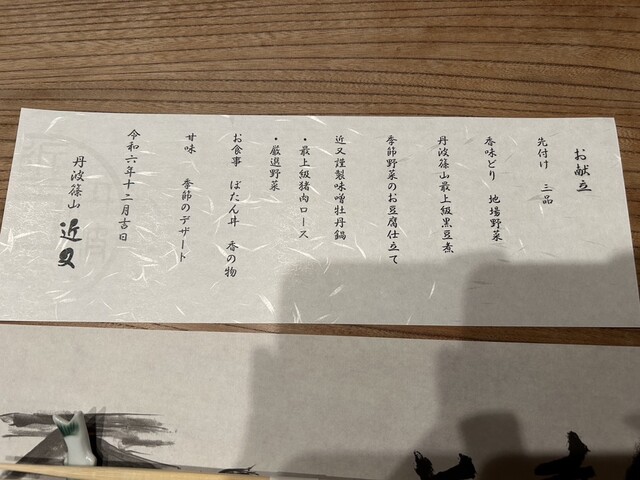 お献立
先付け 三品
香味どり 地場野菜
丹波篠山最上級黒豆煮
季節野菜のお豆腐仕立て
近又謹製味噌牡丹鍋
・最上級猪肉ロース
・厳選野菜
お食事 ぼたん丼 香の物
甘味 季節のデザート
令和六年十二月吉日
丹波篠山 近又